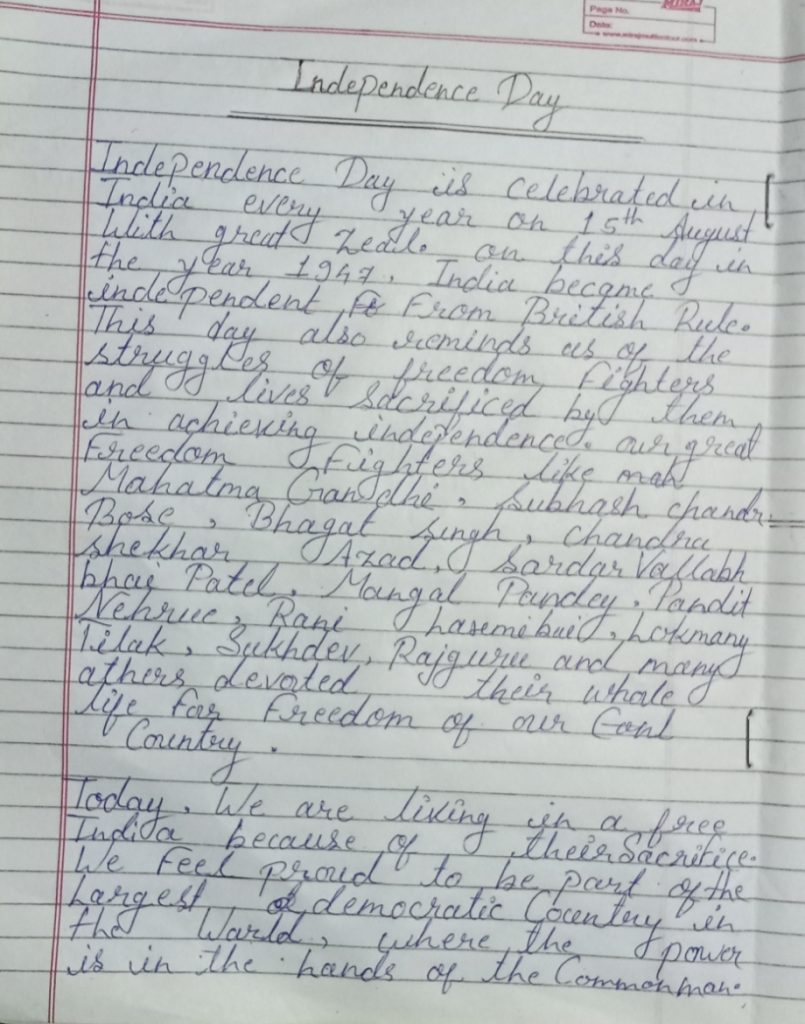 Page No.
Date:
Independence Day
Independence Day is celebrated in
India every year on 15th August
With great Zeal. on this day in
the year 1947, India became
independent From British Rule.
This day also reminds us of the
struggles of freedom Fighters
and lives sacrificed by them
in achieving independence. our great
Freedom Fighters like mah
Mahatma Gandhi, Subhash chandr
Bose, Bhagat singh, Chandra
shekhar Azad, Sardar Vallabh
bhai Patel, Mangal Pandey, Pandit
Nehru, Rani Laxmi bai, Lokmany
Tilak, Sukhdev, Rajguru and many
others devoted their whole
life For Freedom of our
Country.
Today, We are living in a free
India because of their Sacrifice.
We Feel proud to be part of the
Largest democratic Country in
the World, where the power
is in the hands of the Common man.